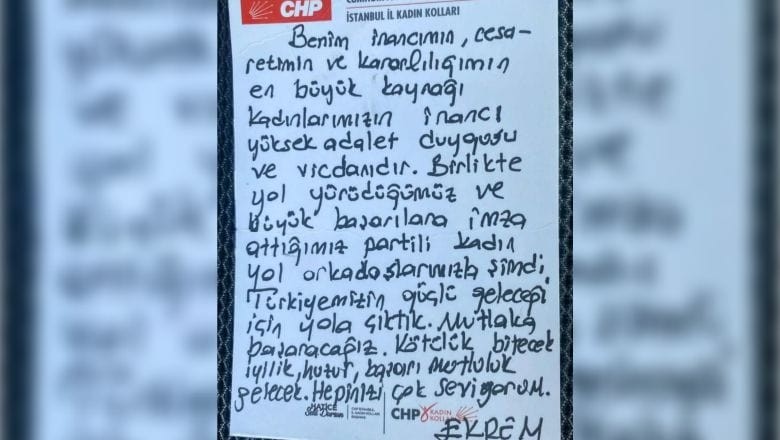 CHP
İSTANBUL İL KADIN KOLLARI
Benim inancımın, cesa-
retimin ve kararlılığımın
en büyük kaynağı
kadınlarımızın inancı
yüksek adalet duygusu
ve vicdanıdır. Birlikte
yol yürüdüğümüz ve
büyük başarılara imza
attığımız partili kadın
yol arkadaşlarımızla şimdi
Türkiyemizin güçlü geleceği
için yola çıktık. Mutlaka
başaracağız. Kötülük bitecek
iyilik, huzur, başarı mutluluk
gelecek. Hepinizi çok seviyorum.
HATİCE
CHP KADIN
KOLLARI
EKREM